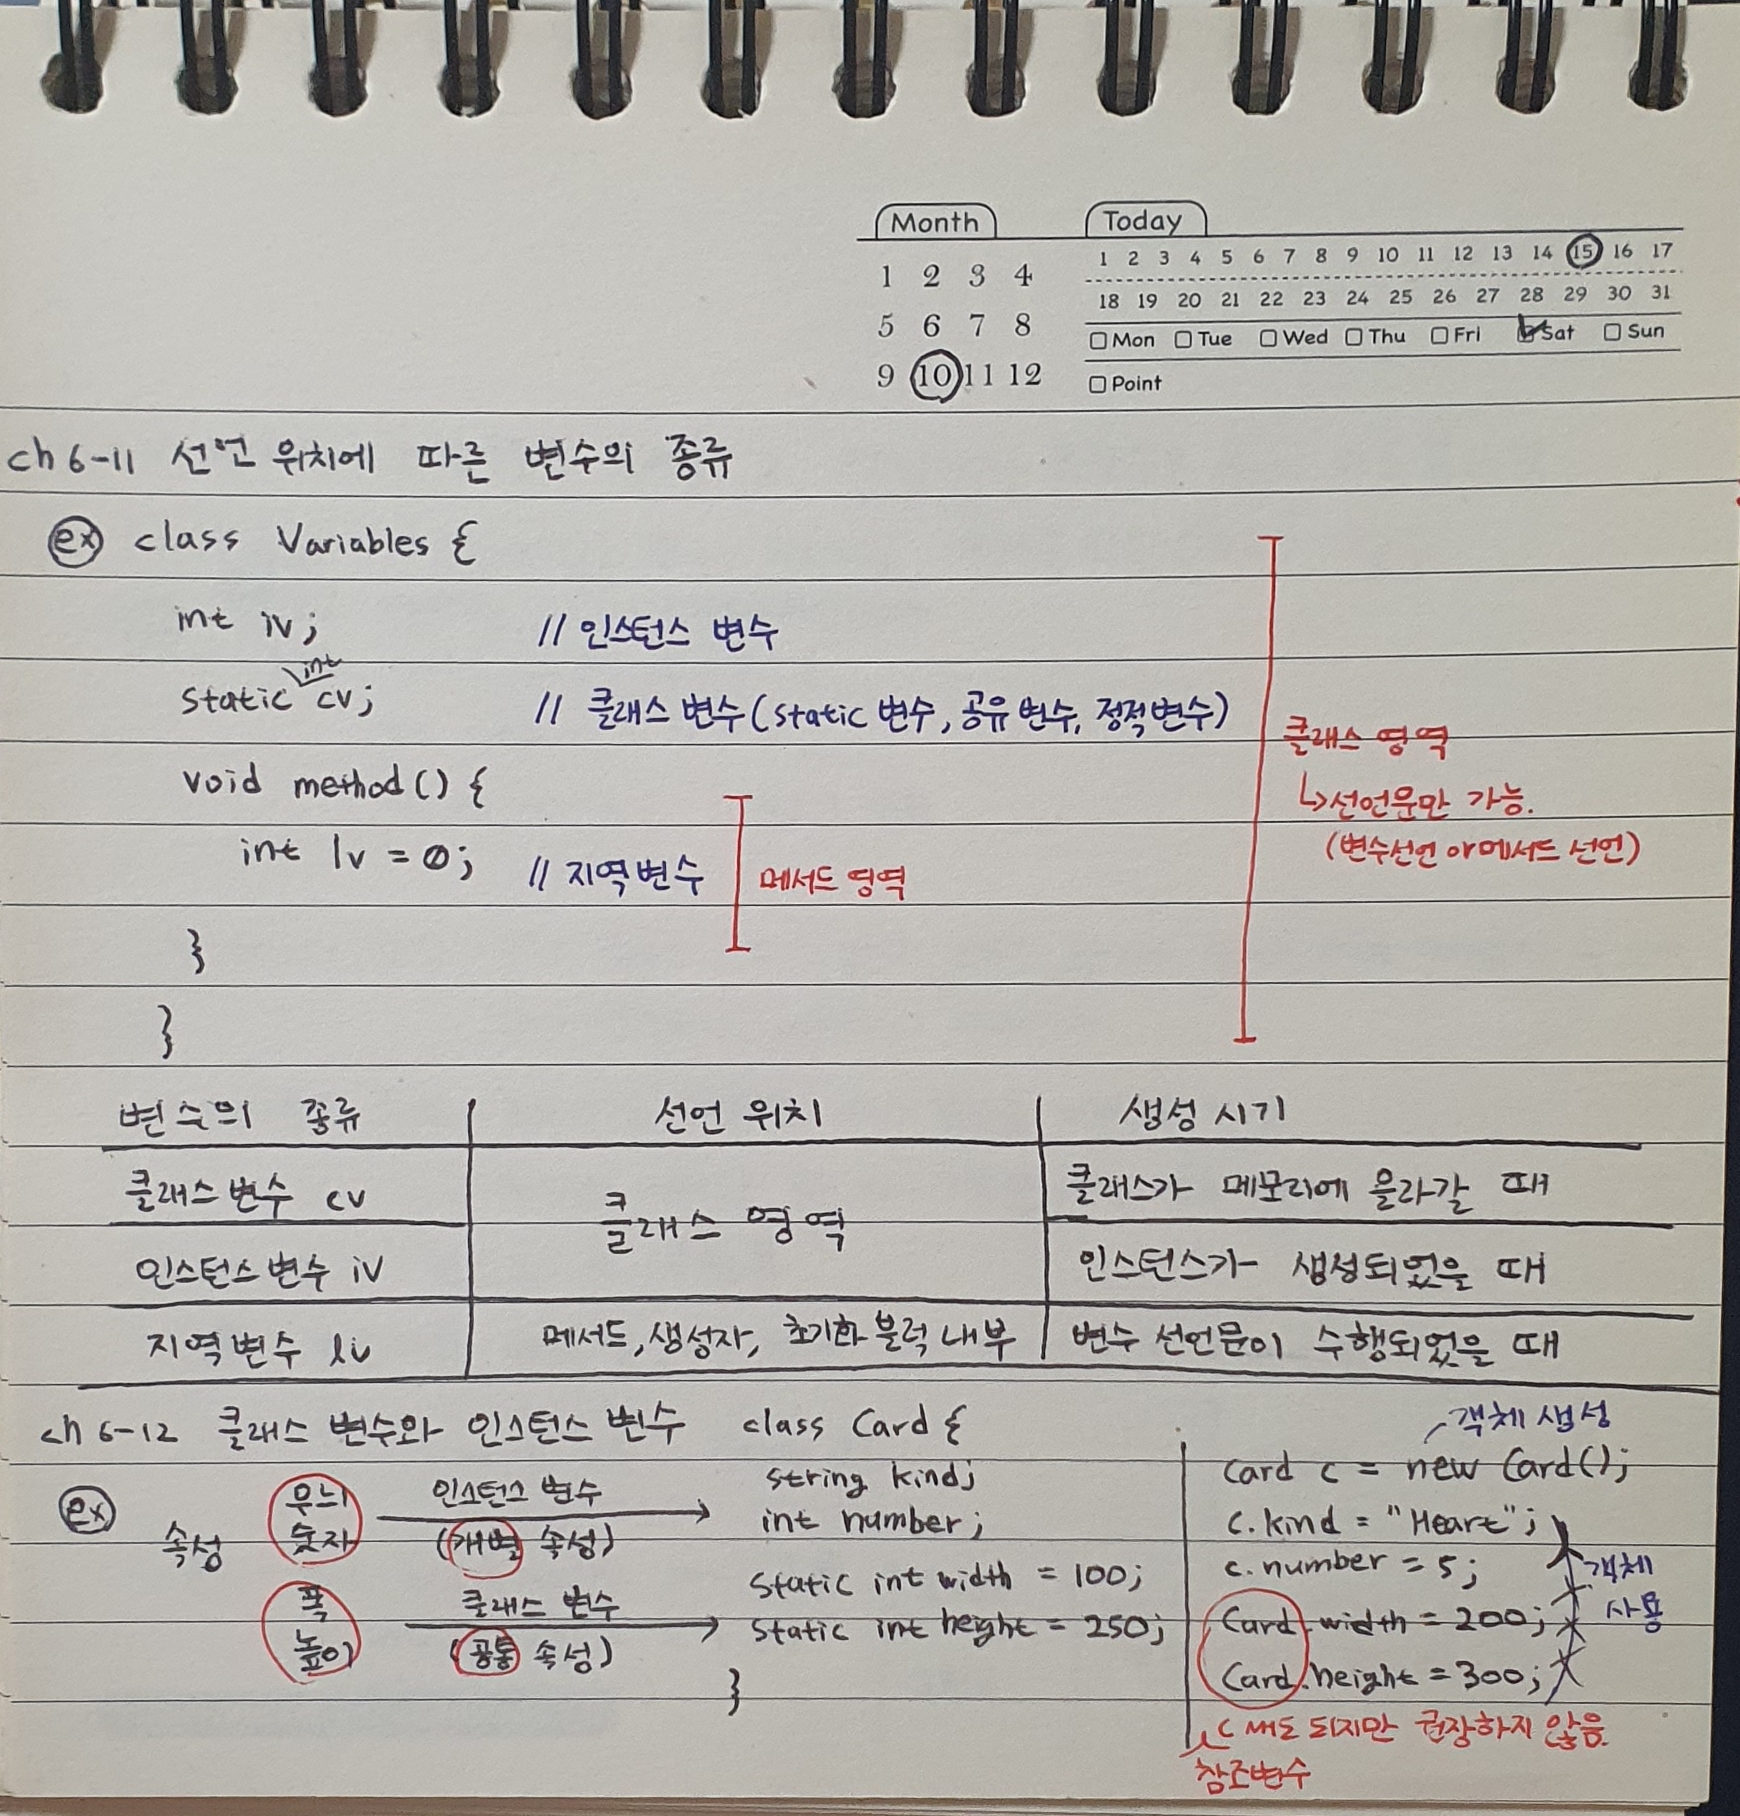 Month Today
1 2 3 4
5 6 7 8
9 10 11 12
1 2 3 4 5 6 7 8 9 10 11 12 13 14 15 16 17
18 19 20 21 22 23 24 25 26 27 28 29 30 31
Mon Tue Wed Thu Fri Sat Sun
Point
ch 6-11 선언 위치에 따른 변수의 종류
ex class Variables {
int iv; // 인스턴스 변수
static int cv; // 클래스 변수(static 변수, 공유 변수, 정적변수)
클래스 영역
↳선언문만 가능.
(변수선언 or 메서드 선언)
void method() {
int lv = 0; // 지역변수 메서드 영역
}
}
변수의 종류 선언 위치 생성 시기
클래스변수 cv 클래스 영역 클래스가 메모리에 올라갈 때
인스턴스변수 iv 인스턴스가 생성되었을 때
지역변수 liv 메서드, 생성자, 초기화 블럭 내부 변수 선언문이 수행되었을 때
ch 6-12 클래스 변수와 인스턴스 변수
ex 속성
무늬 숫자 인스턴스 변수 (개별 속성)
폭 높이 클래스 변수 (공통 속성)
class Card {
string kind;
int number;
static int width = 100;
static int height = 250;
}
객체 생성
Card c = new Card();
c.kind = "Heart";
c.number = 5;
Card.width = 200;
Card.height = 300;
객체 사용
c 써도 되지만 권장하지 않음.
참조변수